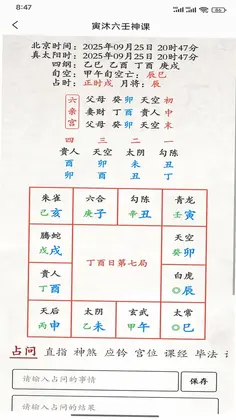 8:47
86
寅沐六壬神课
北京时间：2025年09月25日 20时47分
真太阳时：2025年09月25日 20时47分
四纲：乙巳 乙酉 丁酉 庚戌
旬空：甲午旬空亡：辰巳
占时：正时戌 月将：辰
六 父母 癸卯 天空 初
亲 妻财 丁酉 貴人 中
宫 父母 癸卯 天空 末
四 三 二 一
貴人 天空 太阴 勾陈
酉 卯 未 丑
卯 酉 丑 丁
朱雀 六合 勾陈 青龙
己亥 庚子 辛丑 壬寅
腾蛇 天空
戊戌 癸卯
丁酉日第七局
貴人 白虎
丁酉 ◎辰
天后 太阴 玄武 太常
丙申 乙未 甲午 ◎巳
占问 直指 神煞 应钤 宫位 课经 毕法
请输入占问的事情 保存
请输入占问的结果